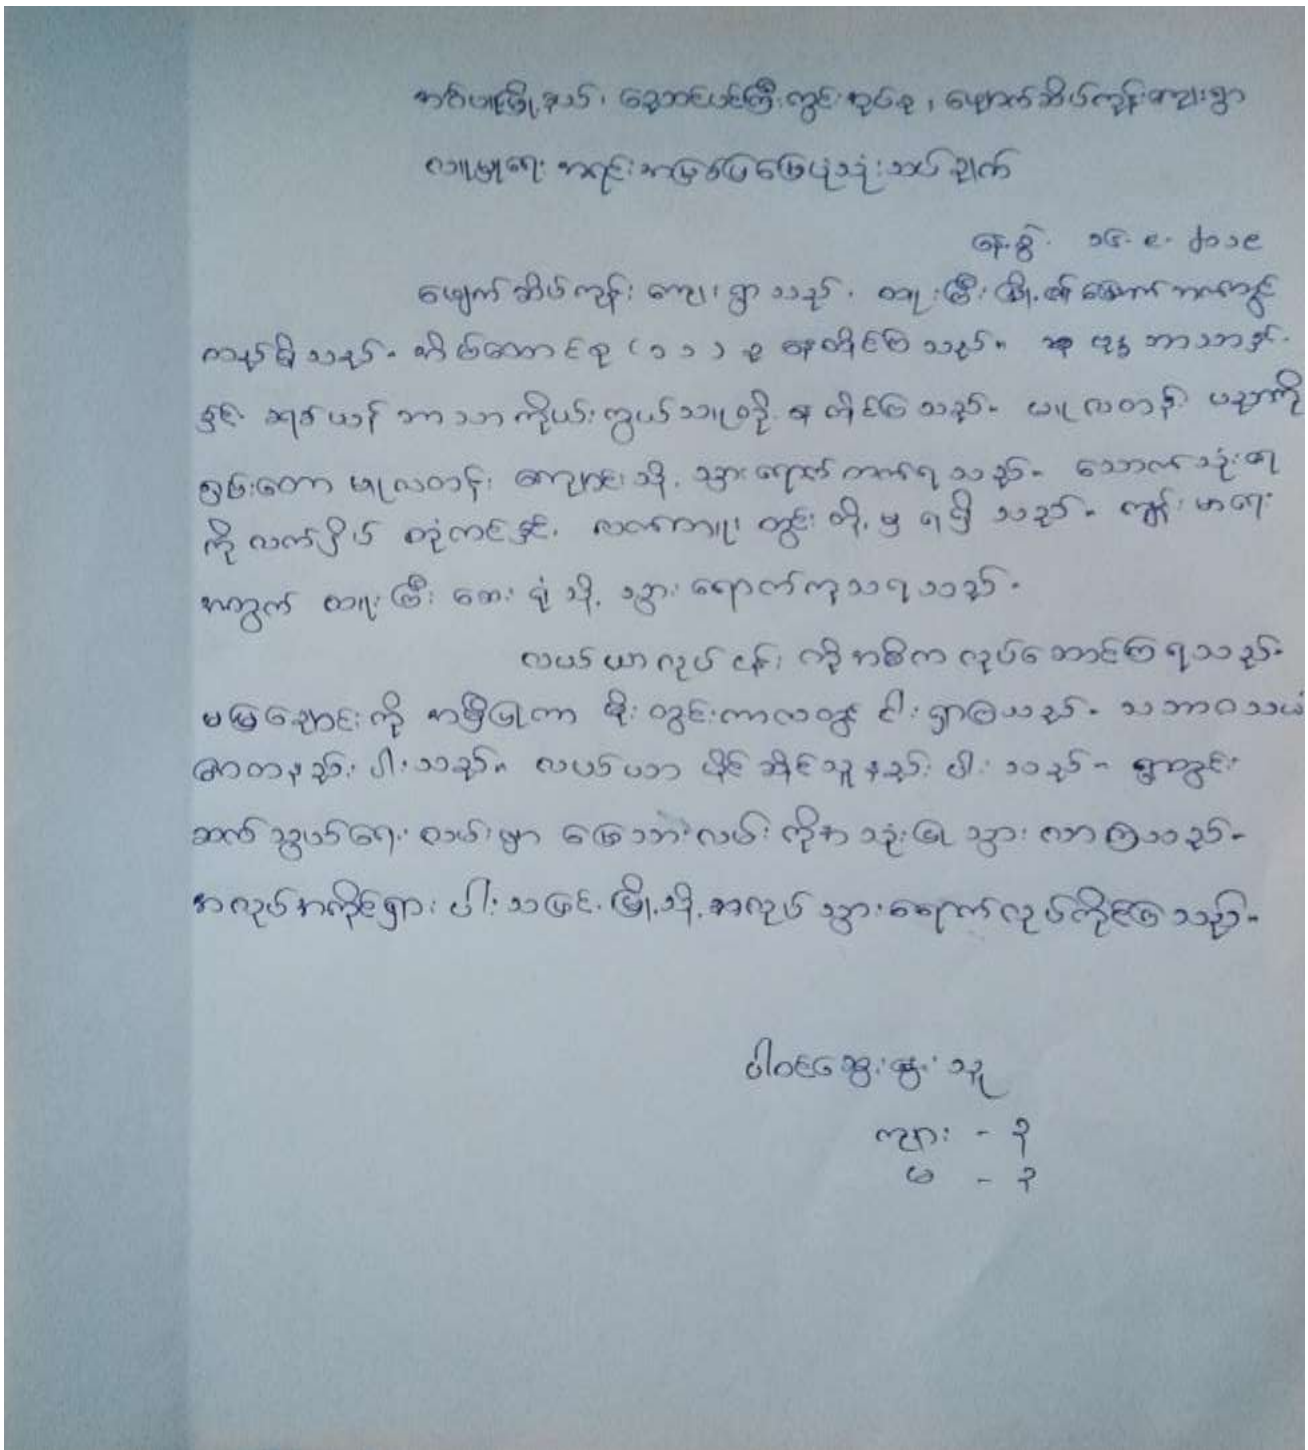 အင်္ဂပူမြို့နယ်၊ ညောင်ပင်ကြီးကွင်းအုပ်စု၊ ဖျောက်ဆိပ်ကုန်းကျေးရွာ
လူမှုရေး အရင်းအမြစ်ပြမြေပုံသုံးသပ်ချက်
နေ့စွဲ. ၁၆. ၉. ၂၀၁၉
ဖျောက်ဆိပ်ကုန်း ကျေးရွာသည်. ထူးကြီးမြို့၏မြောက်ဘက်တွင်
တည်ရှိသည်။ အိမ်ထောင်စု (၁၁) စု နေထိုင်ကြသည်။ ဗုဒ္ဓဘာသာနှင့်
နှင့် ခရစ်ယာန်ဘာသာကိုးကွယ်သူတို့ နေထိုင်ကြသည်။ မူလတန်း ပညာကို
မူလတန်းကျောင်းသို့ သွားရောက်တက်ရသည်။ သောက်သုံးရေ
ကို လက်နှိပ်တုံကင်နှင့် လက်တူးတွင်းတို့မှ ရရှိသည်။ ကျန်းမာရေး
အတွက် ထူးကြီးဆေးရုံသို့ သွားရောက်ကုသရသည်။
လယ်ယာလုပ်ငန်းကို အဓိကလုပ်ဆောင်ကြရသည်။
မမြချောင်းကို အမှီပြုကာ မိုးတွင်းကာလတွင် ငါးရှာကြသည်။ သဘာဝသယံ
ဇာတနည်းပါးသည်။ လယ်ယာပိုင်ဆိုင်သူနည်းပါးသည်။ ရွာတွင်း
ဆက်သွယ်ရေးလမ်းမှာ မြေသားလမ်းကိုအသုံးပြုသွားလာကြသည်။
အလုပ်အကိုင်ရှားပါးသဖြင့် မြို့သို့ အလုပ်သွားရောက်လုပ်ကိုင်ကြသည်။
ပါဝင်ဆွေးနွေးသူ
ကျား - ၃
မ - ၃